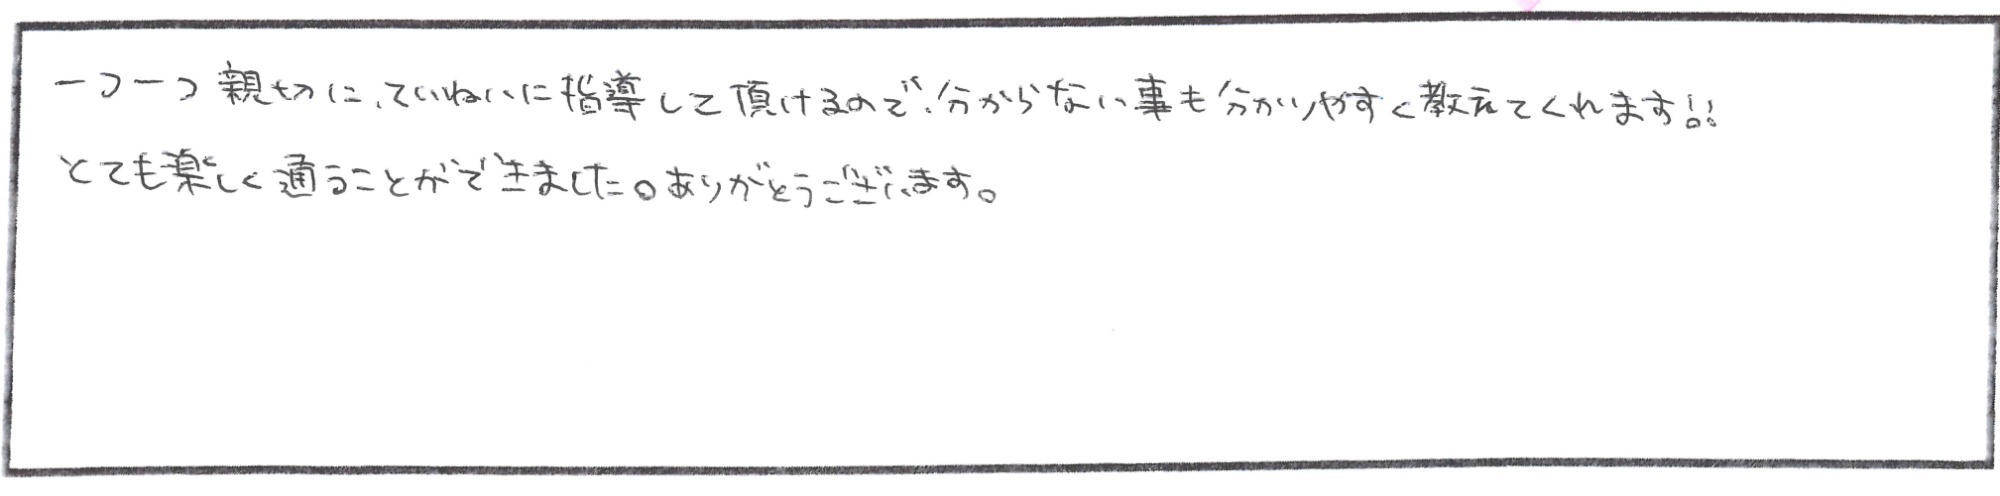 一つ一つ親切に、ていねいに指導して頂けるので、分からない事も分かりやすく教えてくれます!!
とても楽しく通うことができました。ありがとうございます。